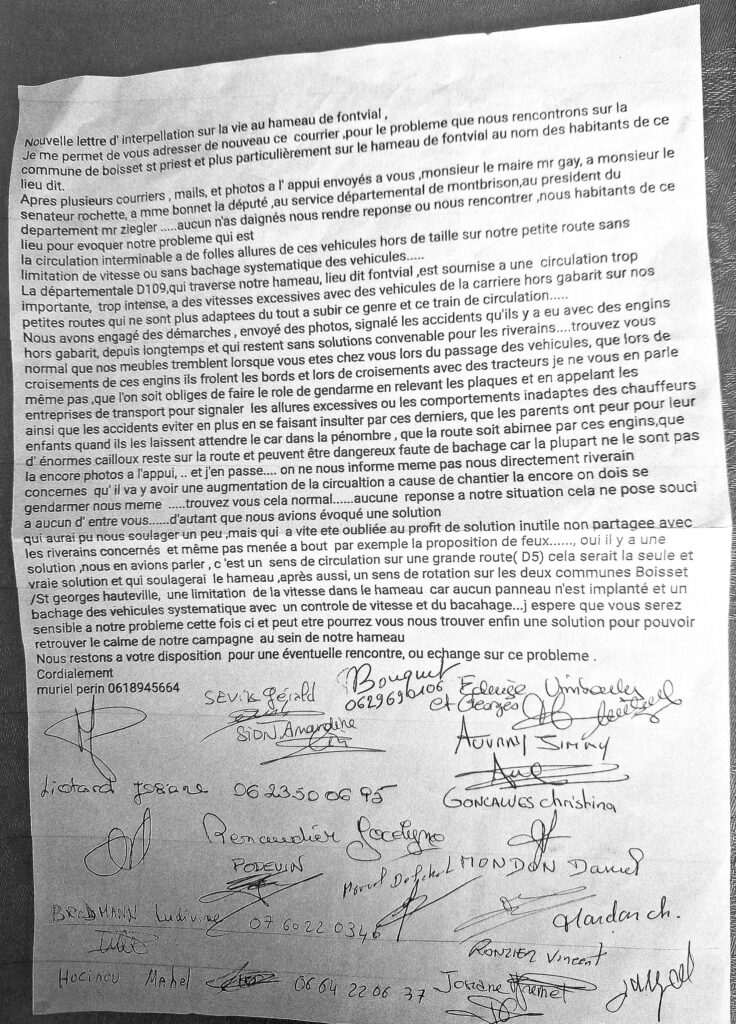 Nouvelle lettre d' interpellation sur la vie au hameau de fontvial ,
Je me permet de vous adresser de nouveau ce courrier ,pour le probleme que nous rencontrons sur la
commune de boisset st priest et plus particulièrement sur le hameau de fontvial au nom des habitants de ce
lieu dit.
Apres plusieurs courriers , mails, et photos a l' appui envoyés a vous ,monsieur le maire mr gay, a monsieur le
senateur rochette, a mme bonnet la député ,au service départemental de montbrison,au president du
departement mr ziegler .....aucun n'as daignés nous rendre reponse ou nous rencontrer ,nous habitants de ce
lieu pour evoquer notre probleme qui est
la circulation interminable a de folles allures de ces vehicules hors de taille sur notre petite route sans
limitation de vitesse ou sans bachage systematique des vehicules.....
La départementale D109,qui traverse notre hameau, lieu dit fontvial ,est soumise a une circulation trop
importante, trop intense, a des vitesses excessives avec des vehicules de la carriere hors gabarit sur nos
petites routes qui ne sont plus adaptees du tout a subir ce genre et ce train de circulation.....
Nous avons engagé des démarches , envoyé des photos, signalé les accidents qu'ils y a eu avec des engins
hors gabarit, depuis longtemps et qui restent sans solutions convenable pour les riverains....trouvez vous
normal que nos meubles tremblent lorsque vous etes chez vous lors du passage des vehicules, que lors de
croisements de ces engins ils frolent les bords et lors de croisements avec des tracteurs je ne vous en parle
même pas ,que l'on soit obliges de faire le role de gendarme en relevant les plaques et en appelant les
entreprises de transport pour signaler les allures excessives ou les comportements inadaptes des chauffeurs
ainsi que les accidents eviter en plus en se faisant insulter par ces derniers, que les parents ont peur pour leur
enfants quand ils les laissent attendre le car dans la pénombre , que la route soit abimee par ces engins,que
d' énormes cailloux reste sur la route et peuvent être dangereux faute de bachage car la plupart ne le sont pas
la encore photos a l'appui, .. et j'en passe.... on ne nous informe meme pas nous directement riverain
concernes qu' il va y avoir une augmentation de la circualtion a cause de chantier la encore on dois se
gendarmer nous meme .....trouvez vous cela normal......aucune reponse a notre situation cela ne pose souci
a aucun d' entre vous......d'autant que nous avions évoqué une solution
qui aurai pu nous soulager un peu ,mais qui a vite ete oubliée au profit de solution inutile non partagee avec
les riverains concernés et même pas menée a bout par exemple la proposition de feux......, oui il y a une
solution ,nous en avions parler , c 'est un sens de circulation sur une grande route( D5) cela serait la seule et
vraie solution et qui soulagerai le hameau ,après aussi, un sens de rotation sur les deux communes Boisset
/St georges hauteville, une limitation de la vitesse dans le hameau car aucun panneau n'est implanté et un
bachage des vehicules systematique avec un controle de vitesse et du bacahage...j espere que vous serez
sensible a notre probleme cette fois ci et peut etre pourrez vous nous trouver enfin une solution pour pouvoir
retrouver le calme de notre campagne au sein de notre hameau
Nous restons a votre disposition pour une éventuelle rencontre, ou echange sur ce probleme .
Cordialement
muriel perin 0618945664
SEVIK Gérald
Bouquet
0629696106
et Georges
SION Amandine
AUVRAY Jimmy
Liotard Josiane 06 23 50 06 95
GONCALVES christina
Renaudier Jocelyne
PODEVIN
Marcel
MONDON Daniel
BRABMANN Ludivine 07 60 22 03 46
Mardon ch.
RONZIER Vincent
HOCINOU Mahel 06 64 22 06 37
Josiane